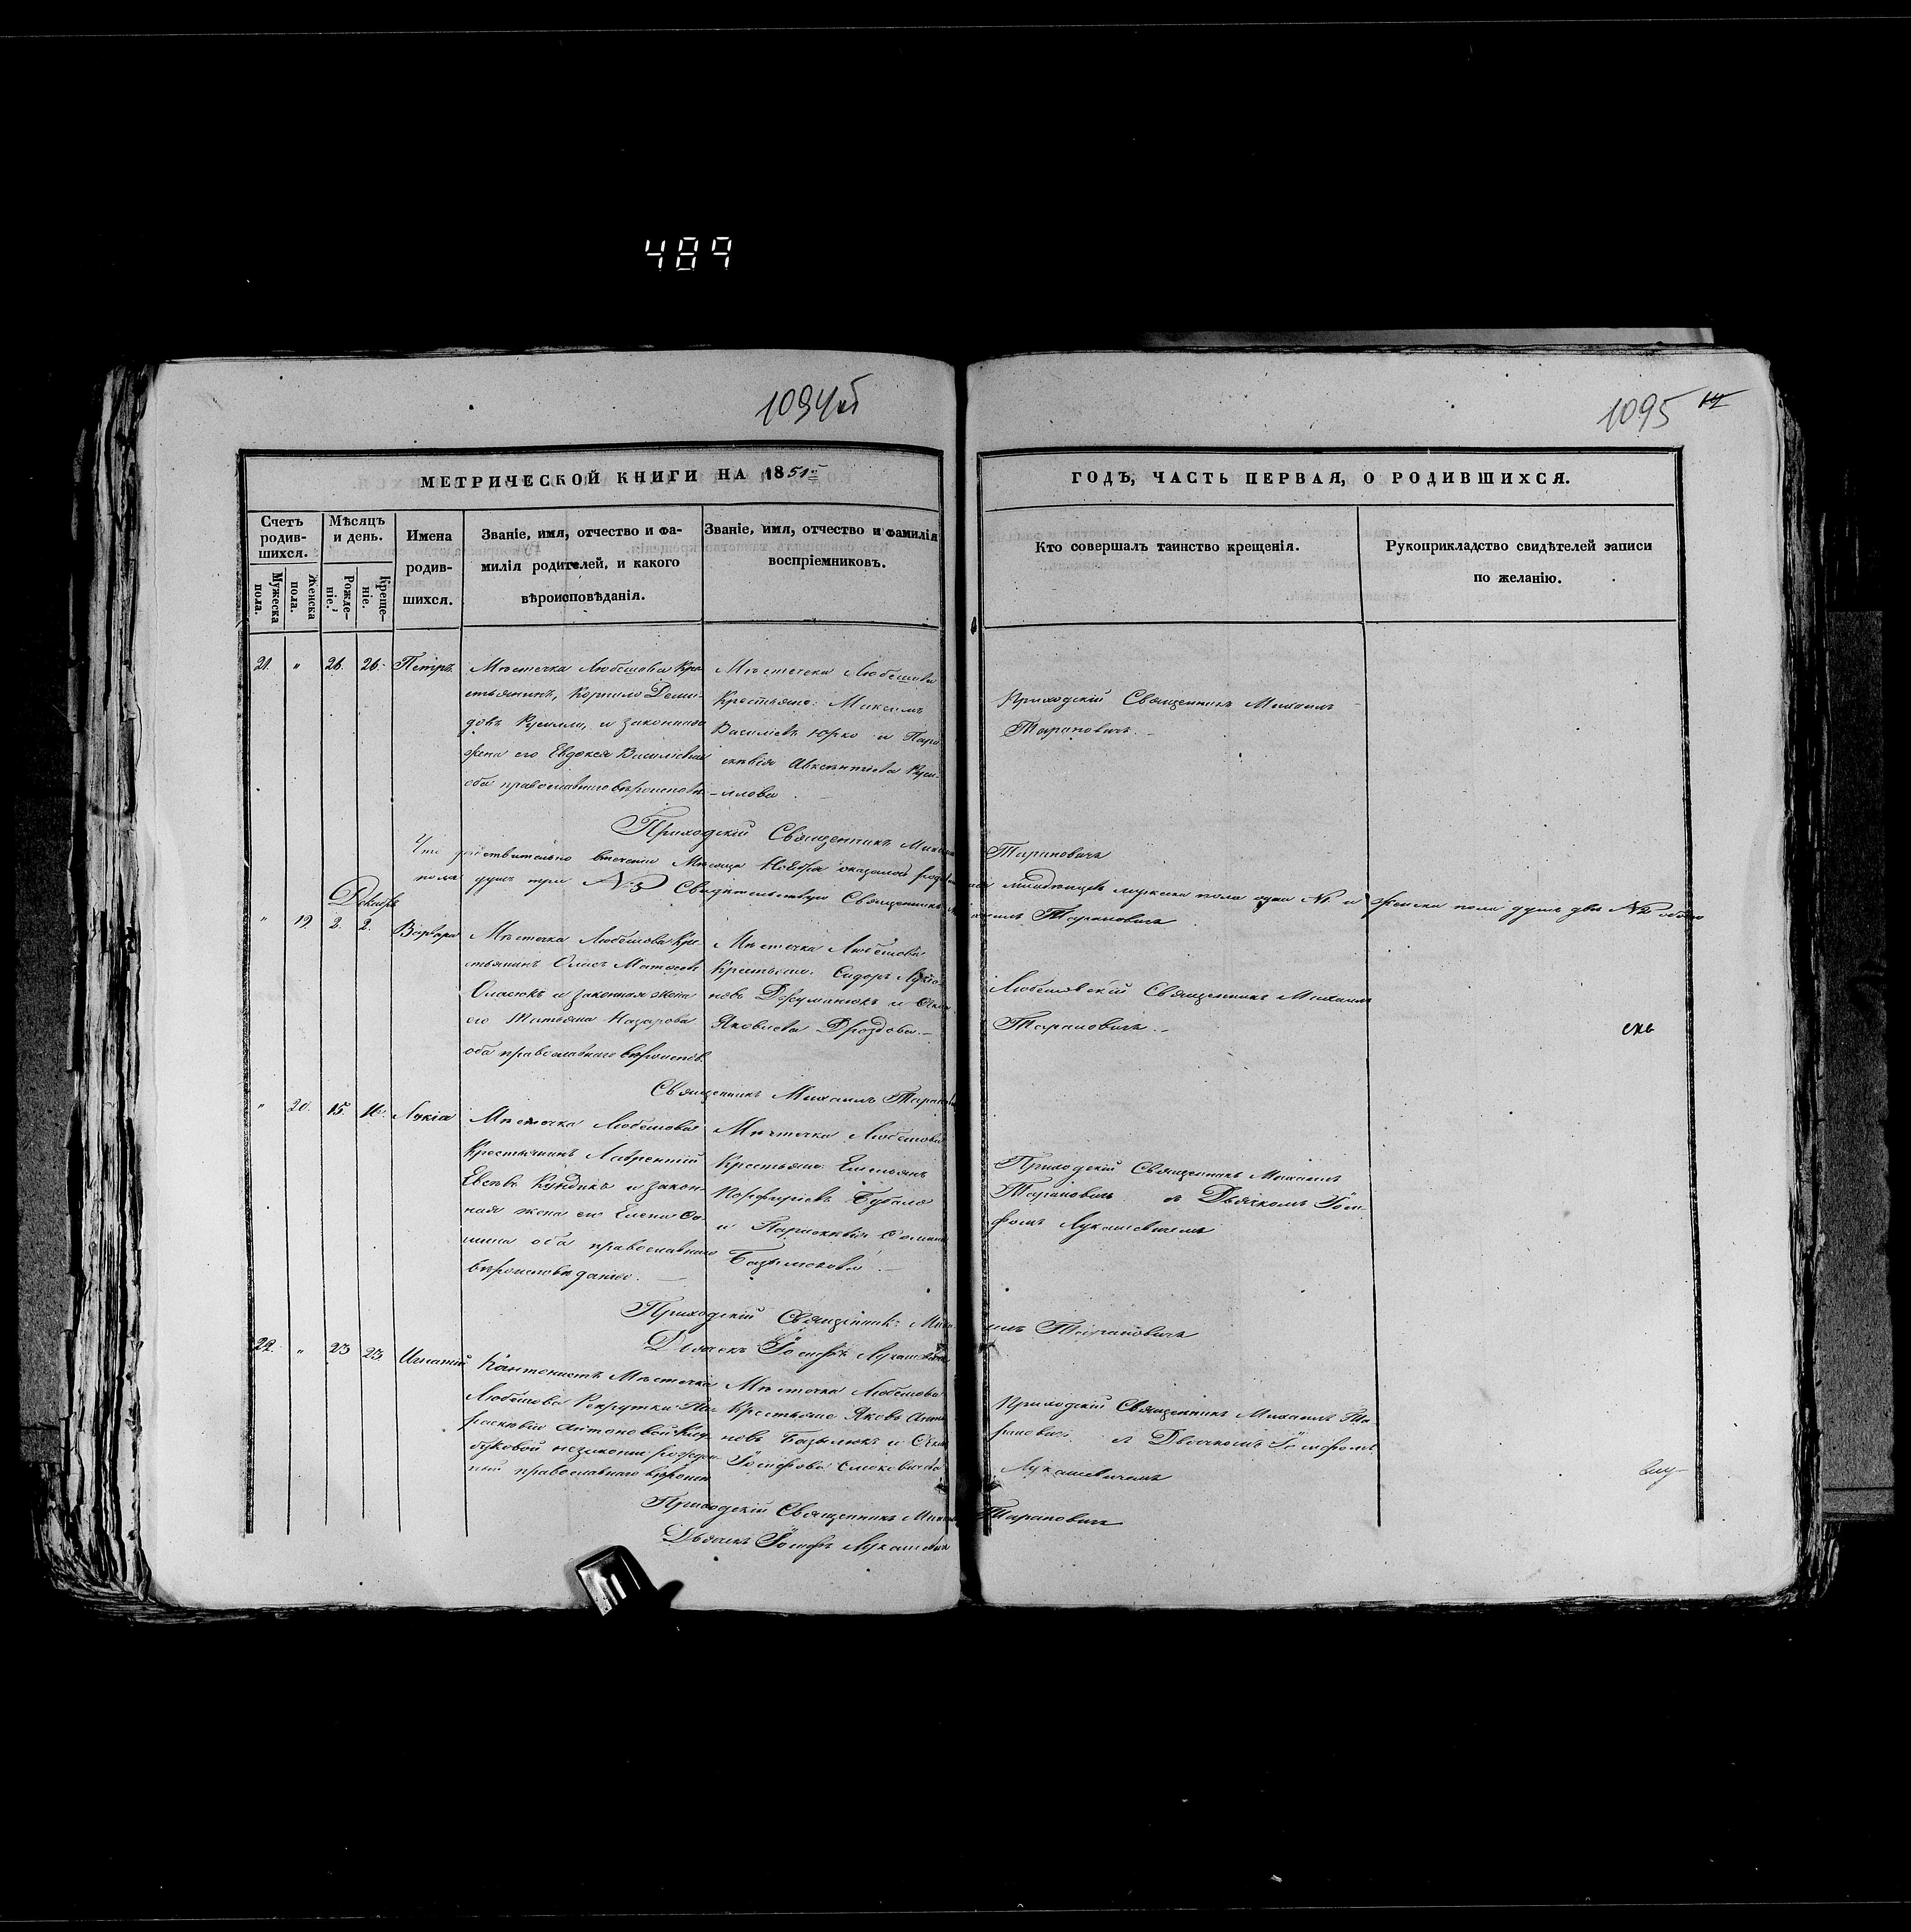 489
1094об
1095
МЕТРИЧЕСКОЙ КНИГИ НА 1851й
ГОДЪ, ЧАСТЬ ПЕРВАЯ, О РОДИВШИХСЯ.
Счетъ родившихся.
Мужеска пола.
Женска пола.
Мѣсяцъ и день.
Рожденіе.
Крещеніе.
Имена родившихся.
Званіе, имя, отчество и фамилія родителей, и какого вѣроисповѣданія.
Званіе, имя, отчество и фамилія воспріемниковъ.
Кто совершалъ таинство крещенія.
Рукоприкладство свидѣтелей записи по желанію.
21. " 26. 26. Петръ
Мѣстечка Любешова Кре
стьянинъ, Корнило Деми-
довъ и законная
жена его Евдокія Василіева
оба православнаго вѣроисповѣ.
Мѣстечка Любешова
Крестьяне: Максимъ
Василіевъ Юрко и Пара
скевія Авксентіева
Приходскій Священникъ Михаилъ
Тарановичъ.
Приходскій Священникъ Михаилъ Тарановичъ
Что дѣйствительно втеченіи Мѣсяца Ноября оказалось младенцевъ мужеска пола одна №1 и женска пола душъ двѣ №2 обоего
пола душъ три №3 Свидѣтельствую Священникъ Михаилъ Тарановичъ
Декабрь
" 19. 2. 2. Варвара
Мѣстечка Любешова Кре
стьянинъ
Оласюкъ и законная жена
его Татьяна Назарова
оба православнаго вѣроисповѣ.
Мѣстечка Любешова
Крестьяне: Сидоръ
Яковлева Дроздова.
Любешовскій Священникъ Михаилъ
Тарановичъ.
Священникъ Михаилъ Тарановичъ
" 20. 15. 16. Лукія
Мѣстечка Любешова
Крестьянинъ Лаврентій
и закон-
ная жена его Елена Фо-
мина оба православнаго
вѣроисповѣданія.
Мѣстечка Любешова
Крестьяне: Емельянъ
Порфирiевъ
и Параскевія Фомина
Базылюкова.
Приходскій Священникъ Михаилъ
Тарановичъ съ Дьячкомъ Іоси-
фомъ Лукашевичемъ
Приходскій Священникъ: Михаилъ Тарановичъ
Дьячекъ Іосифъ Лукашевичъ
22. " 23 23 Игнатій
Кантонистъ Мѣстечка
Любешова Рекрутки Па-
раскевіи Антоновой
незаконно рожден-
ный православнаго вѣроисп.
Мѣстечка Любешова
Крестьяне Яковъ Анто
новъ Базылюкъ и
Іосифова
Приходскій Священникъ Михаилъ Та-
рановичъ съ Дьячкомъ Іосифомъ
Лукашевичемъ
Приходскій Священникъ Михаилъ Тарановичъ
Дьячекъ Іосифъ Лукашевичъ